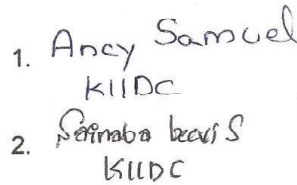 1. Ancy Samuel
KIIDC
2. Sainaba beevi S
KIIDC